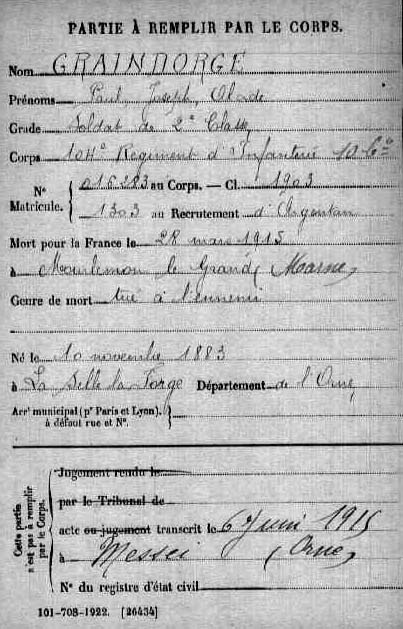 PARTIE À REMPLIR PAR LE CORPS.
Nom GRAINDORGE
Prénoms Paul Joseph,
Grade Soldat de 2e Classe
Corps 104e Régiment d'Infanterie 10 Cie
No Matricule. { 016283 au Corps. — Cl. 1903
1303 au Recrutement d'Argentan
Mort pour la France le 28 mars 1915
à Mourlemon le Grand (Marne)
Genre de mort tué à l'ennemi
Né le 10 novembre 1883
à La Selle la Forge Département de l'Orne
Arrt municipal (pr Paris et Lyon), à défaut rue et No. }
Cette partie n'est pas à remplir par le Corps.
Jugement rendu le
par le Tribunal de
acte ou jugement transcrit le 6 Juin 1915
à Messei (Orne)
No du registre d'état civil
101-708-1922. [26434]